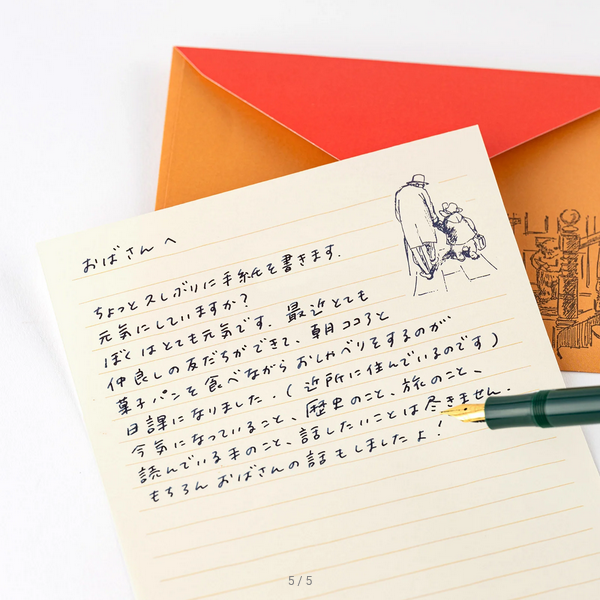 おばさんへ
ちょっと久しぶりに手紙を書きます.
元気にしていますか?
ぼくはとても元気です. 最近とても
仲良しの友だちができて、朝ココアと
菓子パンを食べながらおしゃべりをするのが
日課になりました.(近所に住んでいるのです)
今気になっていること、歴史のこと、旅のこと、
読んでいる本のこと、話したいことは尽きません.
もちろんおばさんの話もしましたよ!
5 / 5